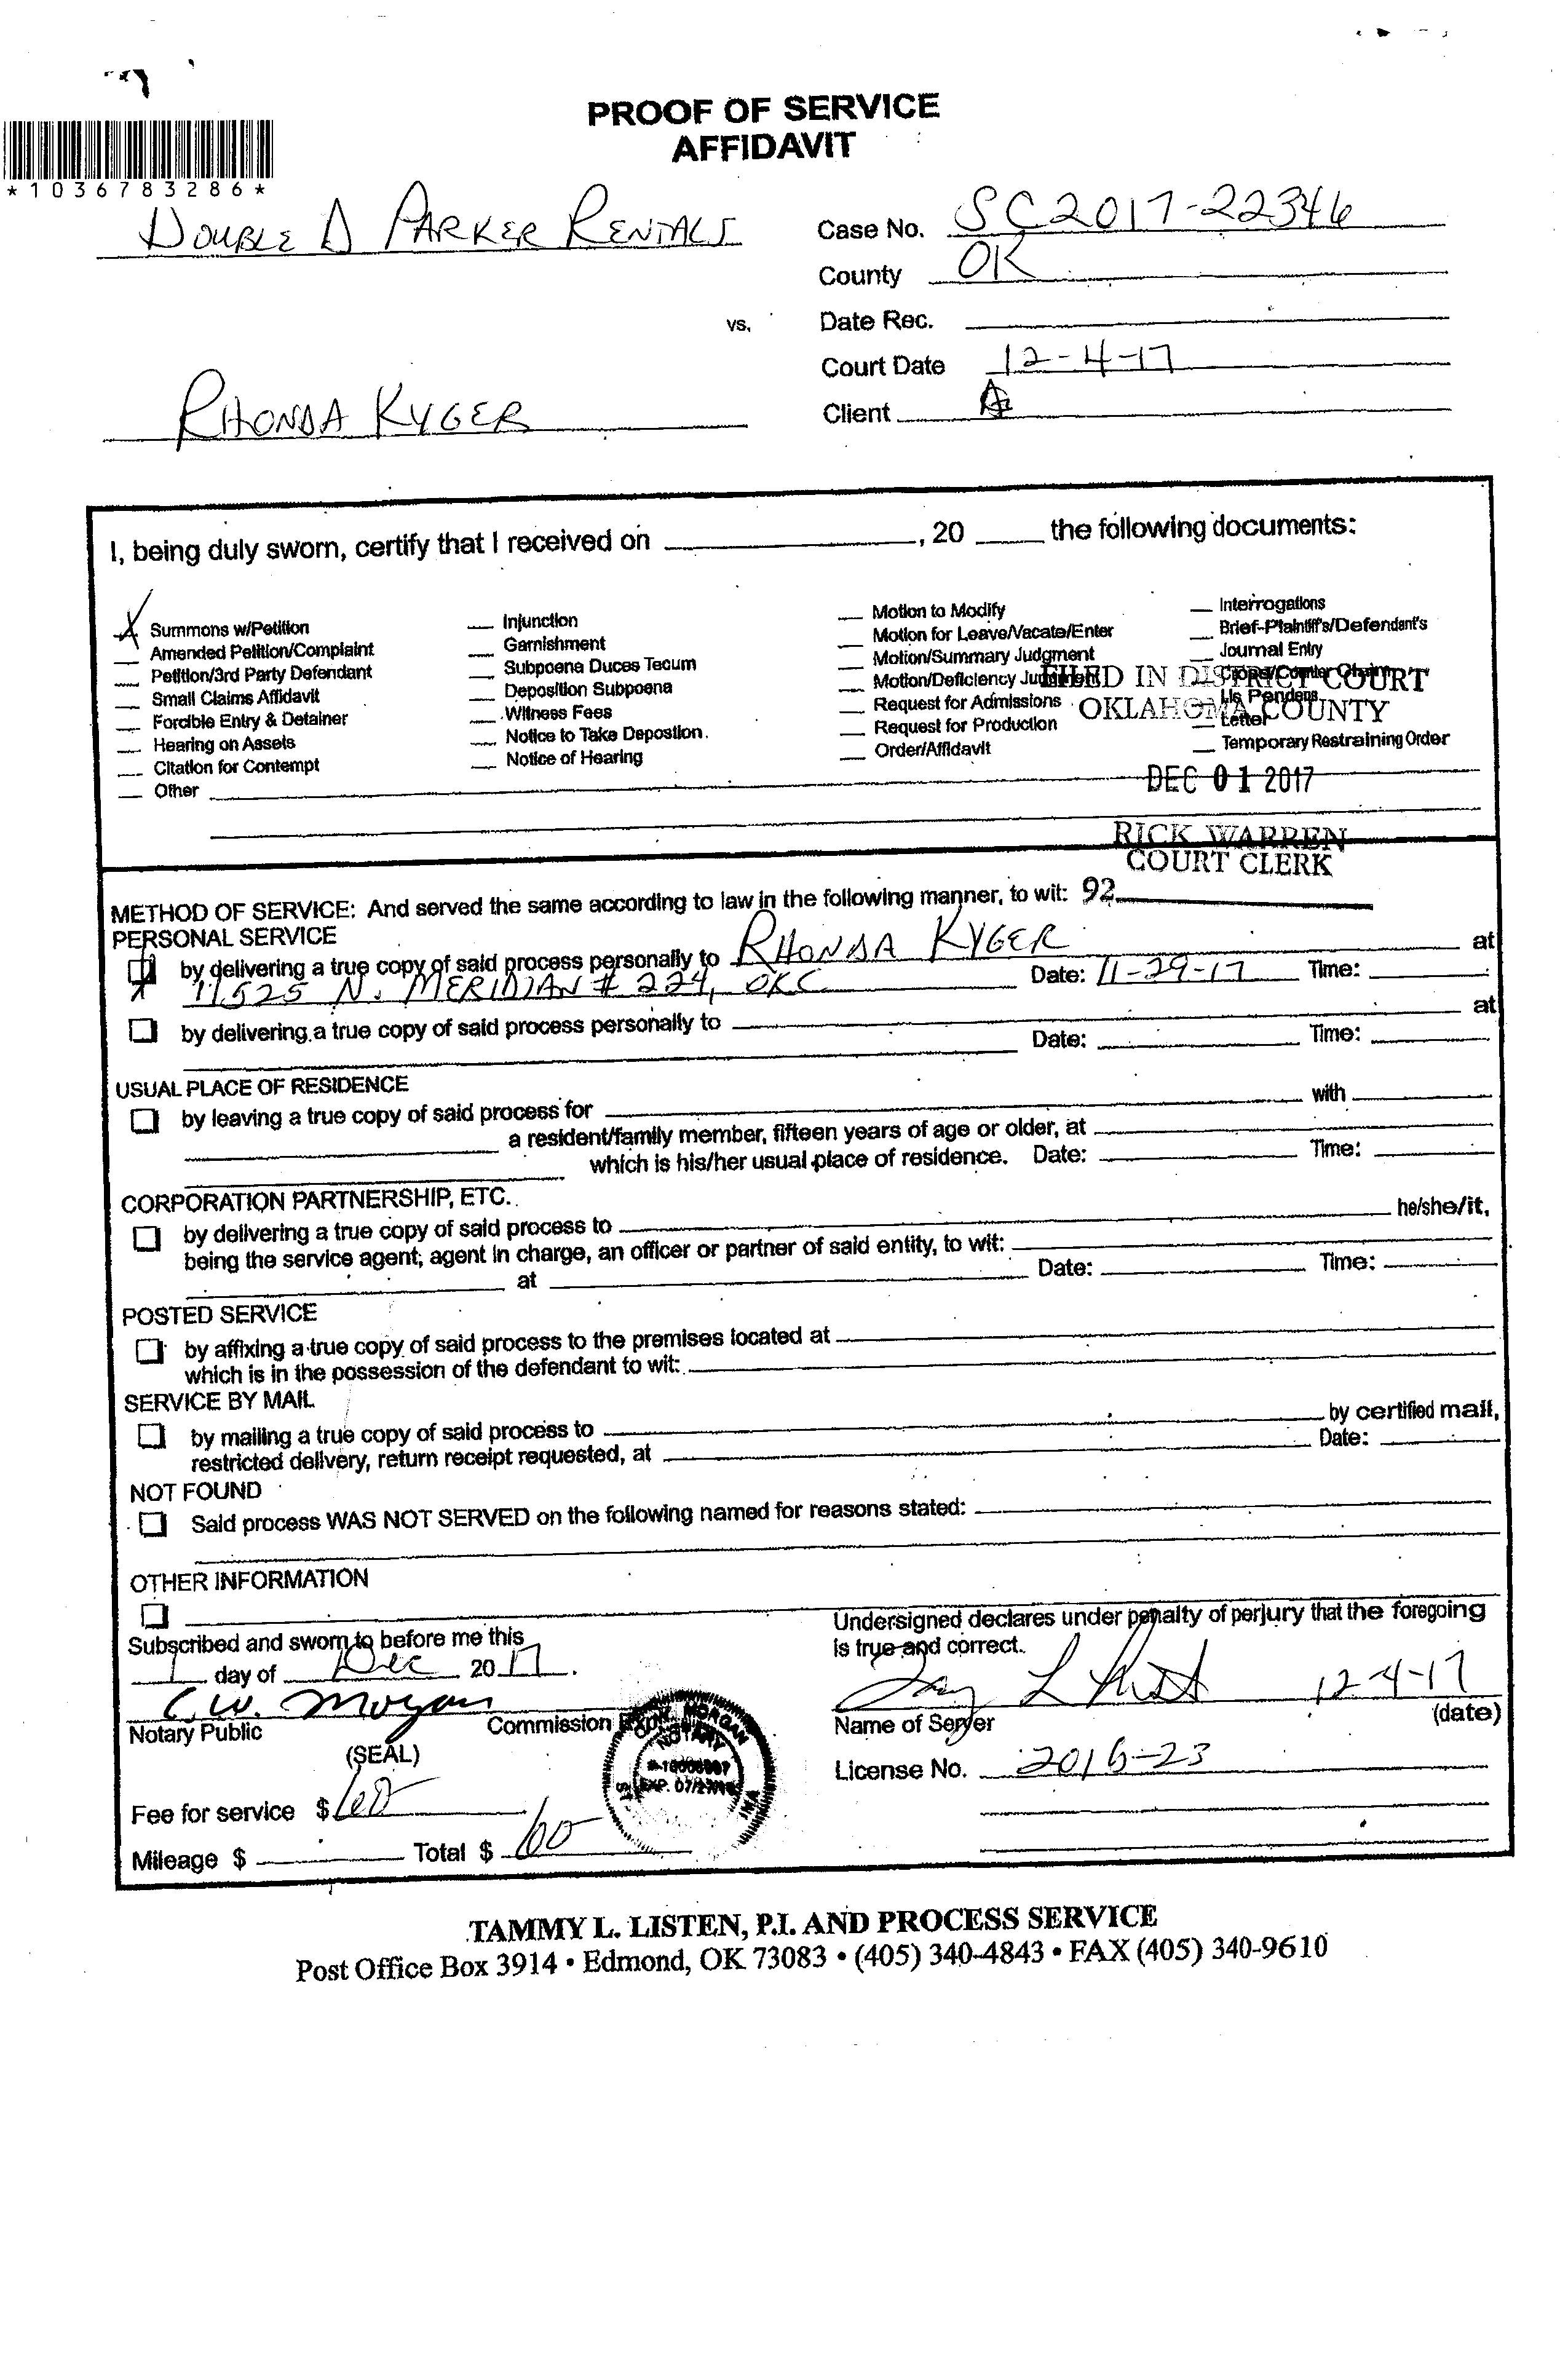 PROOF OF SERVICE
AFFIDAVIT
*1036783286*
DOUBLE D PARKER RENTALS
Case No. SC2017-22346
County OK
vs.
Date Rec.
Court Date 12-4-17
RHONDA KYGER
Client
I, being duly sworn, certify that I received on , 20 the following documents:
X Summons w/Petition
Amended Petition/Complaint
Petition/3rd Party Defendant
Small Claims Affidavit
Forcible Entry & Detainer
Hearing on Assets
Citation for Contempt
Other
Injunction
Garnishment
Subpoena Duces Tecum
Deposition Subpoena
Witness Fees
Notice to Take Depostion.
Notice of Hearing
Motion to Modify
Motion for Leave/Vacate/Enter
Motion/Summary Judgment
Motion/Deficiency Judgment
Request for Admissions
Request for Production
Order/Affidavit
Interrogations
Brief-Plaintiff's/Defendant's
Journal Entry
Lis Pendens
Letter
Temporary Restraining Order
FILED IN DISTRICT COURT
OKLAHOMA COUNTY
DEC 01 2017
RICK WARREN
COURT CLERK
92
METHOD OF SERVICE: And served the same according to law in the following manner, to wit:
PERSONAL SERVICE
by delivering a true copy of said process personally to RHONDA KYGER at
11,525 N. MERIDIAN # 224, OKC Date: 11-29-17 Time:
by delivering a true copy of said process personally to at
Date: Time:
USUAL PLACE OF RESIDENCE
by leaving a true copy of said process for with
a resident/family member, fifteen years of age or older, at
which is his/her usual place of residence. Date: Time:
CORPORATION PARTNERSHIP, ETC.
by delivering a true copy of said process to he/she/it,
being the service agent, agent in charge, an officer or partner of said entity, to wit:
at Date: Time:
POSTED SERVICE
by affixing a true copy of said process to the premises located at
which is in the possession of the defendant to wit:
SERVICE BY MAIL
by mailing a true copy of said process to by certified mail,
restricted delivery, return receipt requested, at Date:
NOT FOUND
Said process WAS NOT SERVED on the following named for reasons stated:
OTHER INFORMATION
Subscribed and sworn to before me this
1 day of Dec 2017.
C.W. Morgan
Notary Public Commission
(SEAL)
MORGAN
NOTARY
Fee for service $ 60
Mileage $ Total $ 60
Undersigned declares under penalty of perjury that the foregoing
is true and correct.
12-4-17
Name of Server (date)
License No. 2016-23
TAMMY L. LISTEN, P.I. AND PROCESS SERVICE
Post Office Box 3914 • Edmond, OK 73083 • (405) 340-4843 • FAX (405) 340-9610